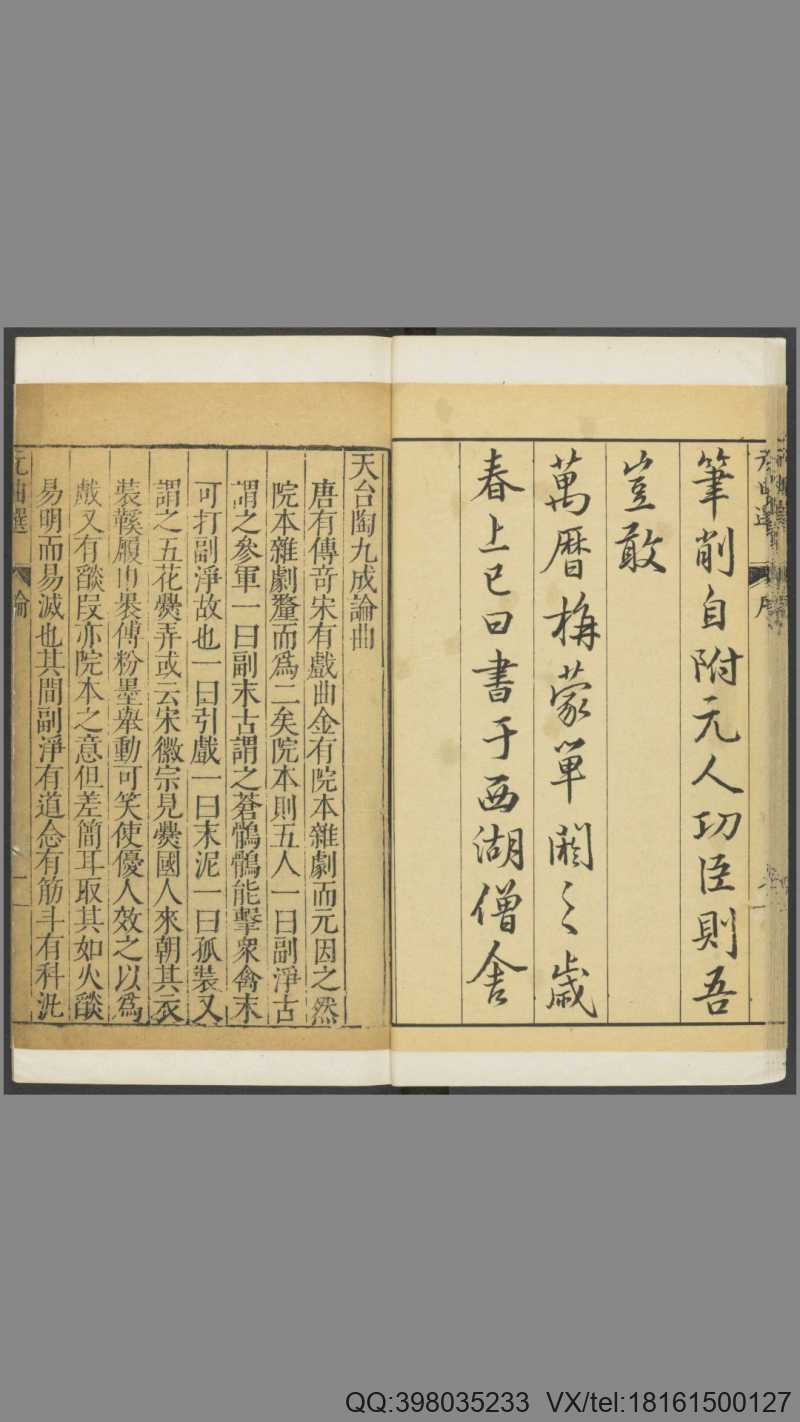 筆削自附元人功臣則吾
豈敢
萬曆旃蒙單閼之歲
春上巳日書于西湖僧舍
天台陶九成論曲
唐有傳奇宋有戲曲金有院本雜劇而元因之然
院本雜劇釐而爲二矣院本則五人一曰副淨古
謂之參軍一曰副末古謂之蒼鶻鶻能擊衆禽末
可打副淨故也一曰引戲一曰末泥一曰孤裝又
謂之五花爨弄或云宋徽宗見爨國人來朝其衣
裝鞵履巾裹傅粉墨舉動可笑使優人效之以爲
戲又有燄段亦院本之意但差簡耳取其如火燄
易明而易滅也其間副淨有道念有筋斗有科汎
元曲選
論
一
QQ:398035233 VX/tel:18161500127